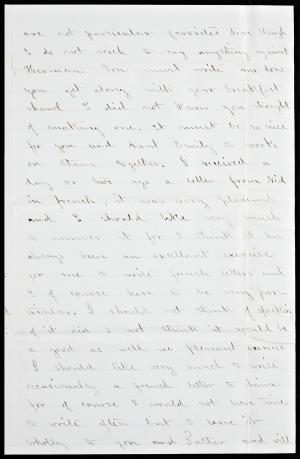 are not particular favorites here though
I do not wish to say anything against
You must write me how
you get along with your breakfast
shawl I did not know you thought
of making one. It must be so nice
for you and Aunt Emily to work
on them together. I received a
day or two ago a letter from Sid
in french, it was very pleasant
and I should like very much
to answer it for I think it has
always been an excellent exercise
for me to write french letters and
I of course have to be very par-
ticular. I should not think of speaking
of it did I not think it would be
a good as well as pleasant exercise
I should like very much to write
occasionally a french letter to him
for of course I would not have time
to write often but I leave it
wholly to you and Father and will